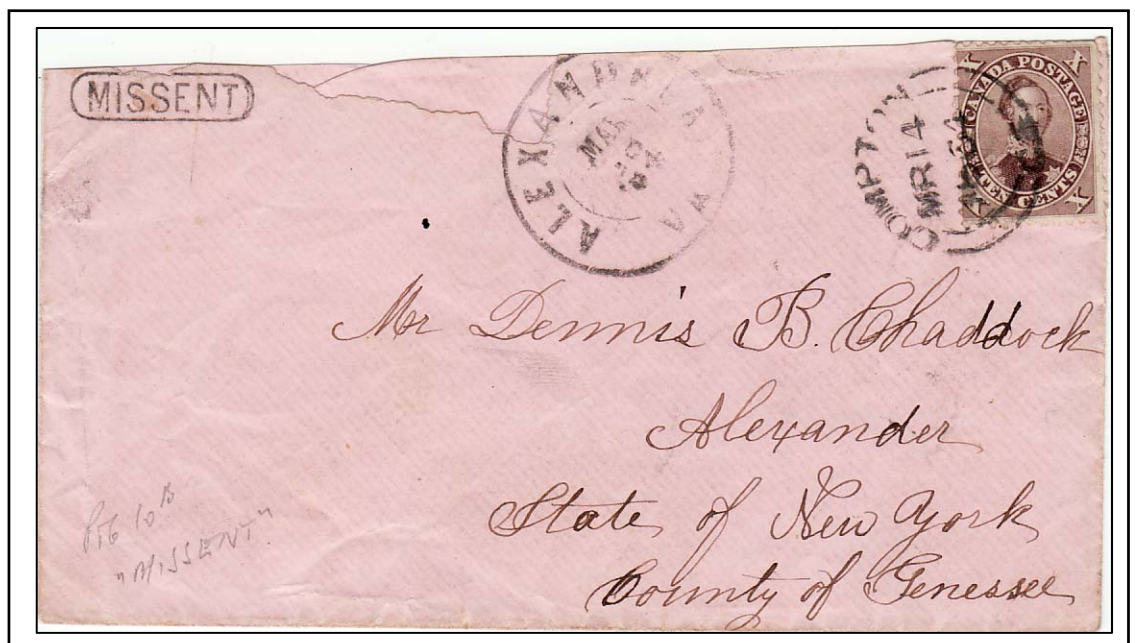 MISSENT
ALEXANDRIA VA
MAR
COMPTON
MR 14
64
CANADA POSTAGE
TEN CENTS
X X X X
Mr Dennis B. Chaddock
Alexander
State of New York
County of Genessee
"MISSENT"